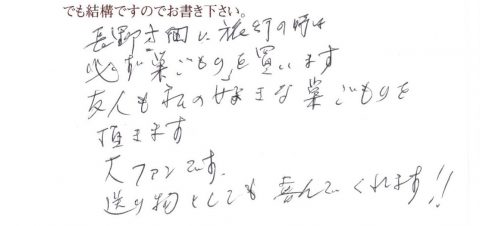 でも結構ですのでお書き下さい。
長野方面に旅行の時は
必ず「巣ごもり」を買います
友人も私の好きな巣ごもりを
頂きます
大ファンです.
送り物としても喜んでくれます!!